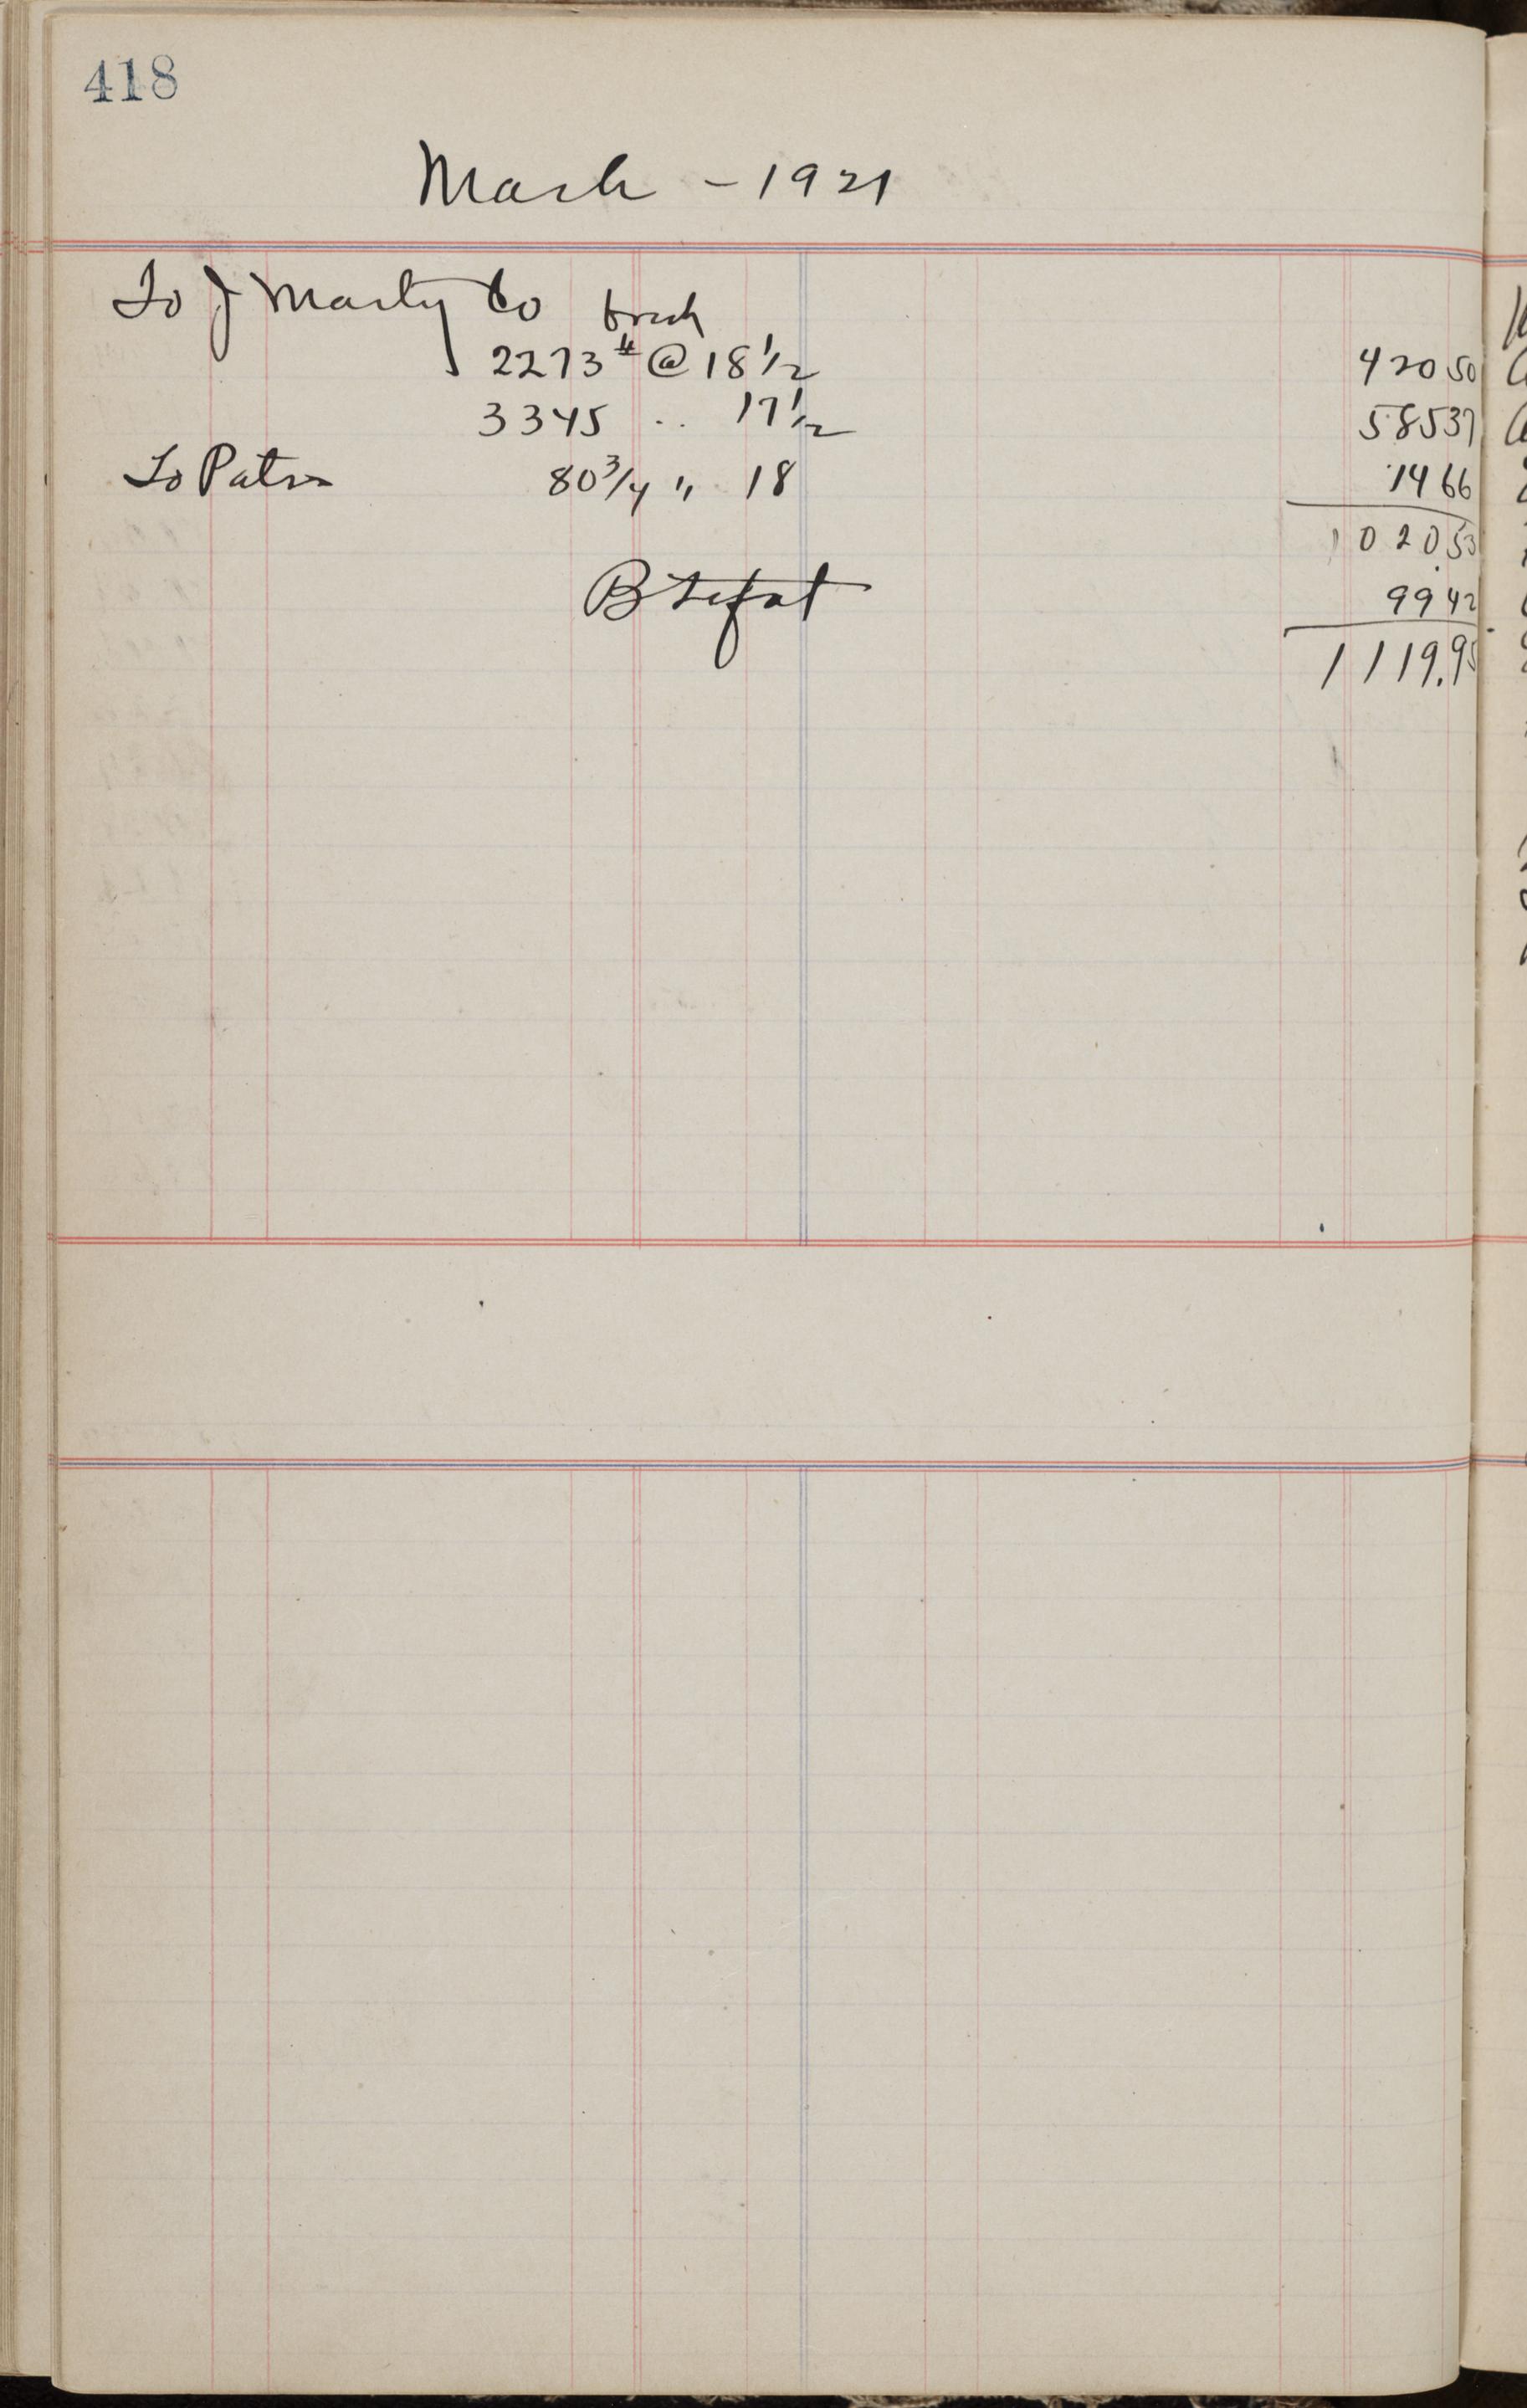 418
March - 1921
To J Marty Co brick
2273# @ 18 1/2 420 50
3345 .. 17 1/2 585 37
To Patrs 80 3/4 " 18 14 66
1020 53
B t fat 99 42
1119.95